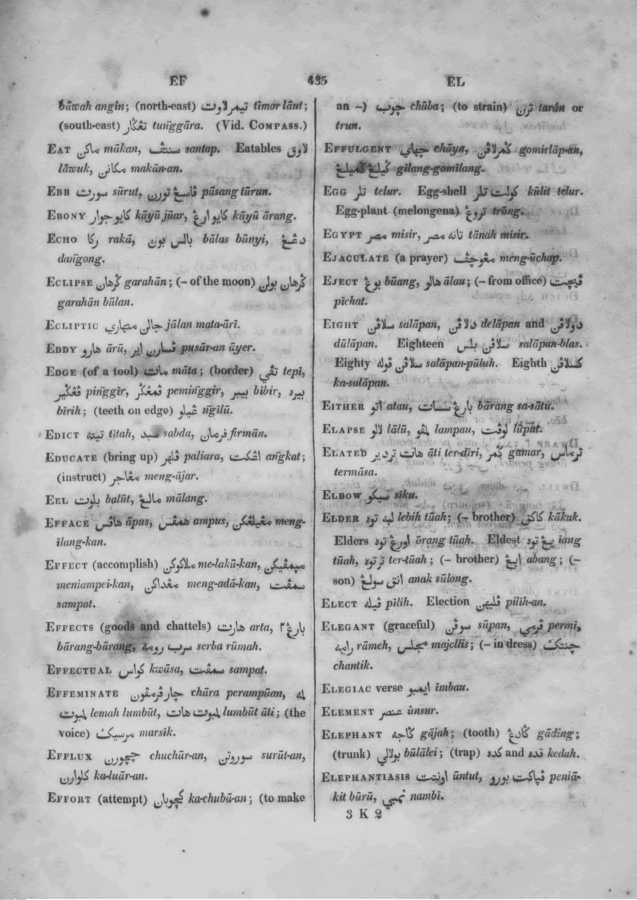 EF
435
EL
bāwah angin; (north-east) تيمر لاوت tīmor lāut;
(south-east) تڠݢار tuṅggāra. (Vid. COMPASS.)
EAT ماكن mākan, سنتڤ santap. Eatables لاوق
lāwuk, مكانن makān-an.
EBB سورت sūrut, ڤاسڠ تورن pāsang tūrun.
EBONY كايو جوار kāyū jūar, كايو ارڠ kāyū ārang.
ECHO رکا rakā, بالس بون bālas būnyi, دڠڠ
daṅgong.
ECLIPSE ݢرهان garahān; (– of the moon) ݢرهان بولن
garahān būlan.
ECLIPTIC جالن متهاري jālan mata-āri.
EDDY هارو ārū, ڤسارن اير pusār-an āyer.
EDGE (of a tool) مات māta; (border) تڤي tepi,
ڤڠݢير piṅggir, ڤمڠݢر pemiṅggir, بيبر bibir, بيره
bīrih; (teeth on edge) سڠيلو sīgīlū.
EDICT تيته tītah, سبد sabda, فرمان firmān.
EDUCATE (bring up) ڤلهر paliara, اڠكت aṅgkat;
(instruct) مڠاجر meng-ājar.
EEL بلوت balūt, مالڠ mālang.
EFFACE هاڤس āpus, همڤس ampus, مڠيلڠكن meng-
ilang-kan.
EFFECT (accomplish) ملاكوكن me-lakū-kan, ميمڤيكن
meniampei-kan, مڠداكن meng-adā-kan, سمڤت
sampat.
EFFECTS (goods and chattels) هارت arta, بارڠ٢
bārang-bārang, سرب رومه serba rūmah.
EFFECTUAL كواس kwāsa, سمڤت sampat.
EFFEMINATE چار ڤرمڤون chāra perampūan, لمه
لمبوت lemah lumbūt, لمبوت هات lumbūt āti; (the
voice) مرسيك marsik.
EFFLUX چچورن chuchūr-an, سوروتن surūt-an,
كلوارن ka-luār-an.
EFFORT (attempt) كچوبان ka-chubā-an; (to make
an –) چوب chūba; (to strain) ترن tarān or
trun.
EFFULGENT چهاي chāya, ݢمرلاڤن gomirlāp-an,
ݢيلڠ ݢميلڠ gīlang-gomīlang.
EGG تلر telur. Egg-shell كولت تلر kūlit telur.
Egg-plant (melongena) تروڠ trōng.
EGYPT مصر misir, تانه مصر tānah misir.
EJACULATE (a prayer) مڠوچڤ meng-ūchap.
EJECT بوڠ būang, هالو ālau; (– from office) ڤيچت
pīchat.
EIGHT سلاڤن salāpan, دلاڤن delāpan and دولاڤن
dūlāpan. Eighteen سلاڤن بلس salāpan-blas.
Eighty سلاڤن ڤوله salāpan-pūluh. Eighth كسلاڤن
ka-salāpan.
EITHER اتو atau, بارڠ سسات bārang sa-sātū.
ELAPSE لالو lālū, لمڤو lampau, لوڤت lūpat.
ELATED هات تردير āti ter-dīri, ݢمر gamar, ترماس
termāsa.
ELBOW سيكو siku.
ELDER لبه توه lebih tūah; (– brother) كاكق kākuk.
Elders اورڠ توه ōrang tūah. Eldest يڠ توه iang
tūah, ترتوه ter-tūah; (– brother) ابڠ abang; (–
son) انق سولڠ anak sūlong.
ELECT ڤيله pīlih. Election ڤليهن pilīh-an.
ELEGANT (graceful) سوڤن sūpan, ڤرمي permi,
رامه rāmeh, مجلس majelis; (– in dress) چنتك
chantik.
ELEGIAC verse ايمبو imbau.
ELEMENT عنصر ùnsur.
ELEPHANT ݢاجه gājah; (tooth) ݢادڠ gāding;
(trunk) بولالي būlālei; (trap) كده and قده kedah.
ELEPHANTIASIS اونتت ūntut, ڤياكت بورو peniā-
kit būrū, نمبي nambi.
3 K 2